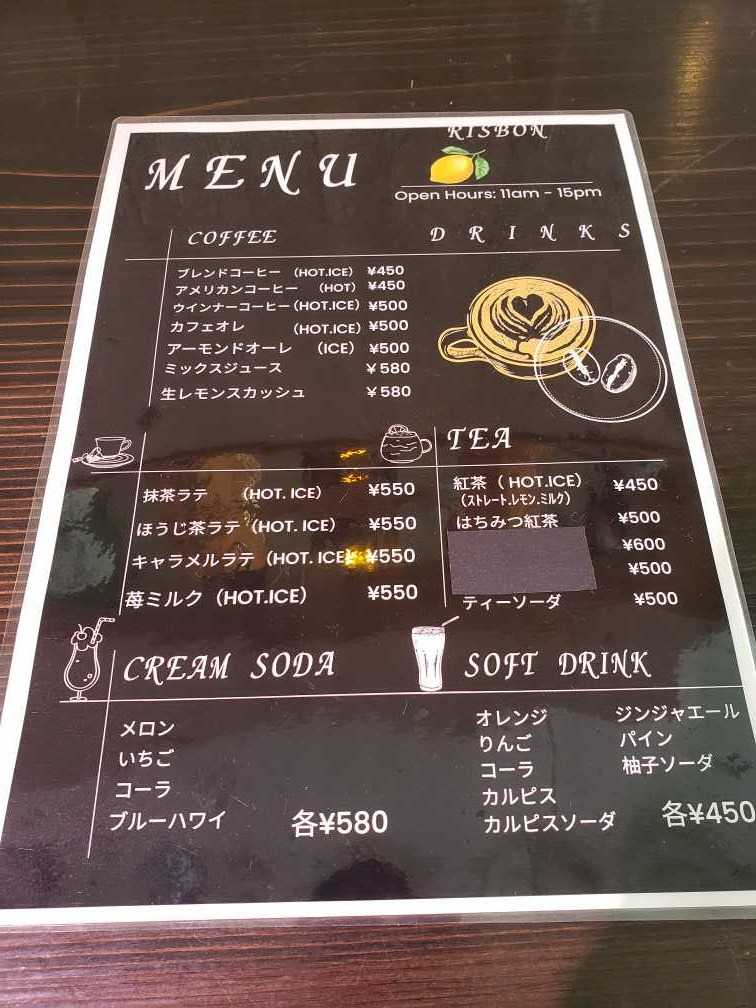 RISBON
MENU
Open Hours: 11am - 15pm
COFFEE
DRINKS
ブレンドコーヒー (HOT.ICE) ¥450
アメリカンコーヒー (HOT) ¥450
ウインナーコーヒー(HOT.ICE) ¥500
カフェオレ (HOT.ICE) ¥500
アーモンドオーレ (ICE) ¥500
ミックスジュース ¥580
生レモンスカッシュ ¥580
抹茶ラテ (HOT. ICE) ¥550
ほうじ茶ラテ (HOT. ICE) ¥550
キャラメルラテ (HOT. ICE) ¥550
苺ミルク (HOT.ICE) ¥550
TEA
紅茶 ( HOT.ICE) ¥450
(ストレート.レモン.ミルク)
はちみつ紅茶 ¥500
¥600
¥500
ティーソーダ ¥500
CREAM SODA
メロン
いちご
コーラ
ブルーハワイ
各¥580
SOFT DRINK
オレンジ
りんご
コーラ
カルピス
カルピスソーダ
ジンジャエール
パイン
柚子ソーダ
各¥450